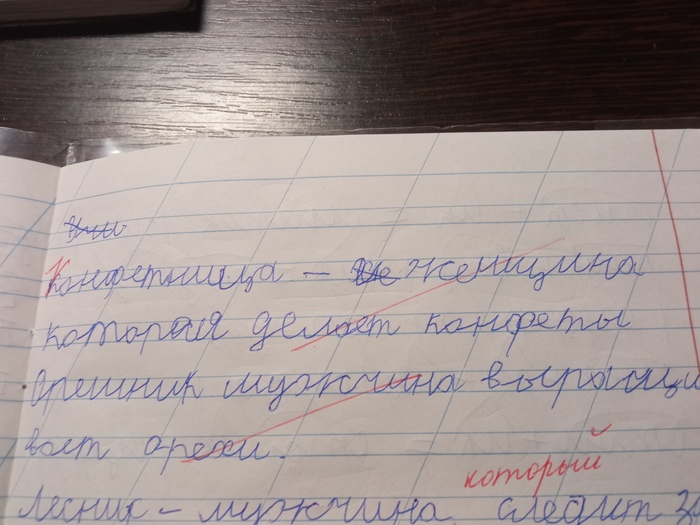 Конфетница – женщина
которая делает конфеты
Орешник мужчина выращи
вает орехи.
который
Лесник – мужчина следит за